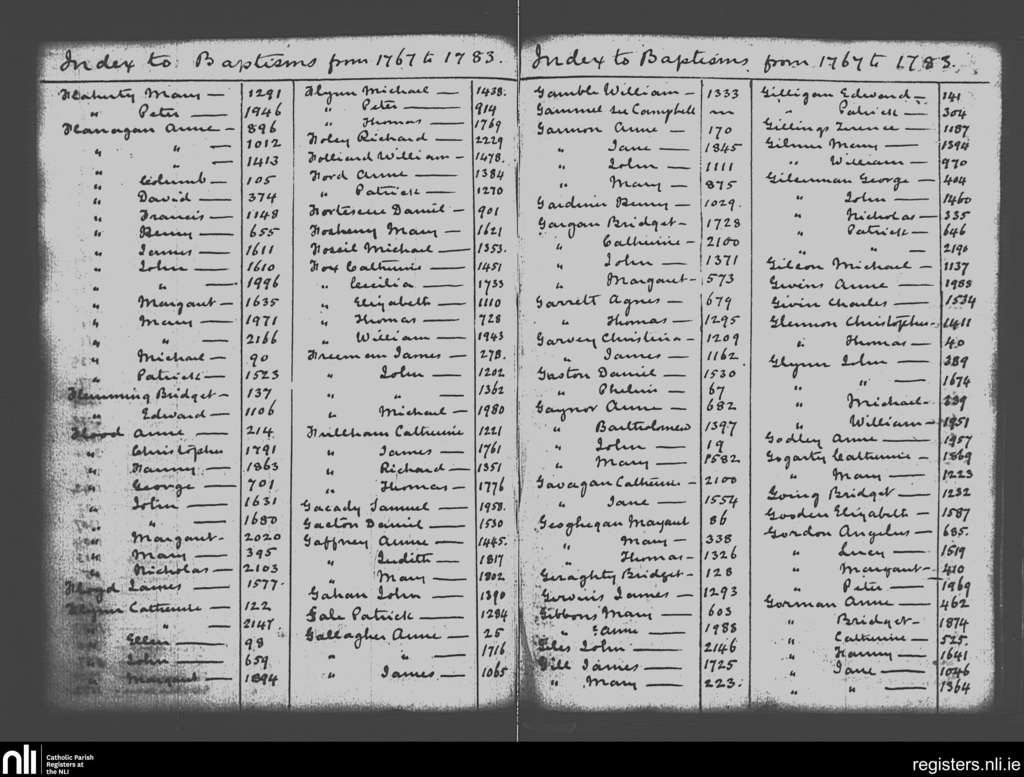 Index to Baptisms from 1767 to 1783.
Flaherty Mary — 1291
" Peter — 1946
Flanagan Anne — 896
" " — 1012
" " — 1413
" Columb — 105
" David — 374
" Francis — 1148
" Henry — 655
" James — 1611
" John — 1610
" " — 1996
" Margaret — 1635
" Mary — 1971
" " — 2166
" Michael — 90
" Patrick — 1523
Flemming Bridget — 137
" Edward — 1106
Flood Anne — 214
" Christopher 1791
" Fanny — 1863
" George — 701
" John — 1631
" " — 1680
" Margaret - 2020
" Mary — 395
" Nicholas — 2103
Floyd James — 1577.
Flynn Catherine — 122
" " — 2147.
" Ellen — 98
" John — 659
" Margaret — 1894
Flynn Michael — 1438.
" Peter — 914
" Thomas — 1769
Foley Richard — 2229
Folliard William — 1478.
Ford Anne — 1384
" Patrick — 1270
Fortescue Daniel — 901
Fosbery Mary — 1621
Foseil Michael — 1353.
Fox Catherine — 1451
" Cecilia — 1733
" Elizabeth — 1110
" Thomas — 728
" William — 1943
Freeman James — 278.
" John — 1202
" " — 1362
" Michael — 1980
Frillham Catherine 1221
" James — 1761
" Richard — 1351
" Thomas — 1776
Gacady Samuel — 1958.
Gaeton Daniel — 1530
Gaffney Anne — 1445.
" Judith — 1817
" Mary — 1802
Gahan John — 1390
Gale Patrick — 1284
Gallagher Anne — 25
" " — 1716
" James — 1065
Index to Baptisms from 1767 to 1783.
Gamble William — 1333
Gammel see Campbell
Gannon Anne — 170
" Jane — 1845
" John — 1111
" Mary — 875
Gardiner Henry — 1029.
Gargan Bridget — 1728
" Catherine — 2100
" John — 1371
" Margaret — 573
Garrett Agnes — 679
" Thomas — 1295
Garvey Christina — 1209
" James — 1162
Gaston Daniel — 1530
" Phelim — 67
Gaynor Anne — 682
" Bartholomew 1397
" John — 19
" Mary — 1582
Gavagan Catherine - 2100
" Jane — 1554
Geoghegan Margaret 86
" Mary — 338
" Thomas — 1326
Geraghty Bridget - 128
Gervins James — 1293
Gibbons Mary — 603
" Anne — 1988
Giles John — 2146
Gill James — 1725
" Mary — 223.
Gilligan Edward — 141
" Patrick — 304
Gillings Terence — 1187
Gilmer Mary — 1394
" William — 970
Gilsenan George — 404
" John — 1460
" Nicholas — 335
" Patrick — 646
" " — 2190
Gilson Michael — 1137
Givins Anne — 1988
Givin Charles — 1534
Glennon Christopher - 1411
" Thomas — 40
Glynn John — 389
" " — 1674
" Michael — 239
" William — 1951
Godley Anne — 1957
Gogarty Catherine — 1869
" Mary — 1223
Going Bridget — 1232
Gosden Elizabeth — 1587
Gordon Angelus — 685.
" Lucy — 1519
" Margaret — 410
" Peter — 1969
Gorman Anne — 462
" Bridget - 1874
" Catherine — 525.
" Fanny — 1641
" Jane — 1046
" " — 1364
nli
Catholic Parish
Registers at
the NLI
registers.nli.ie